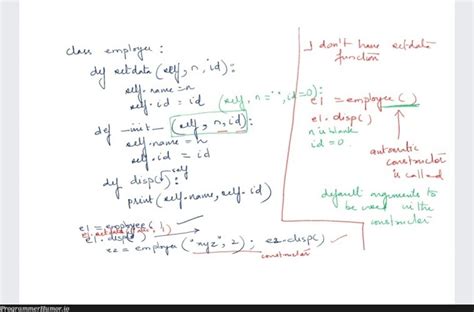 class employee:
def setdata(self, n, id):
self.name=n
self.id = id
(self, n='', id=0):
def __init__ (self, n, id):
self.name=n
self.id=id
def disp(self):
print(self.name, self.id)
e1 = employee(
e1.disp()
e2 = employee("xyz", 2); e2.disp()
constructor
I don't have setdata
function
e1 = employee()
e1.disp()
n is blank
id = 0
automatic
constructor
is called
default arguments to
be used in the
constructor
ProgrammerHumor.io